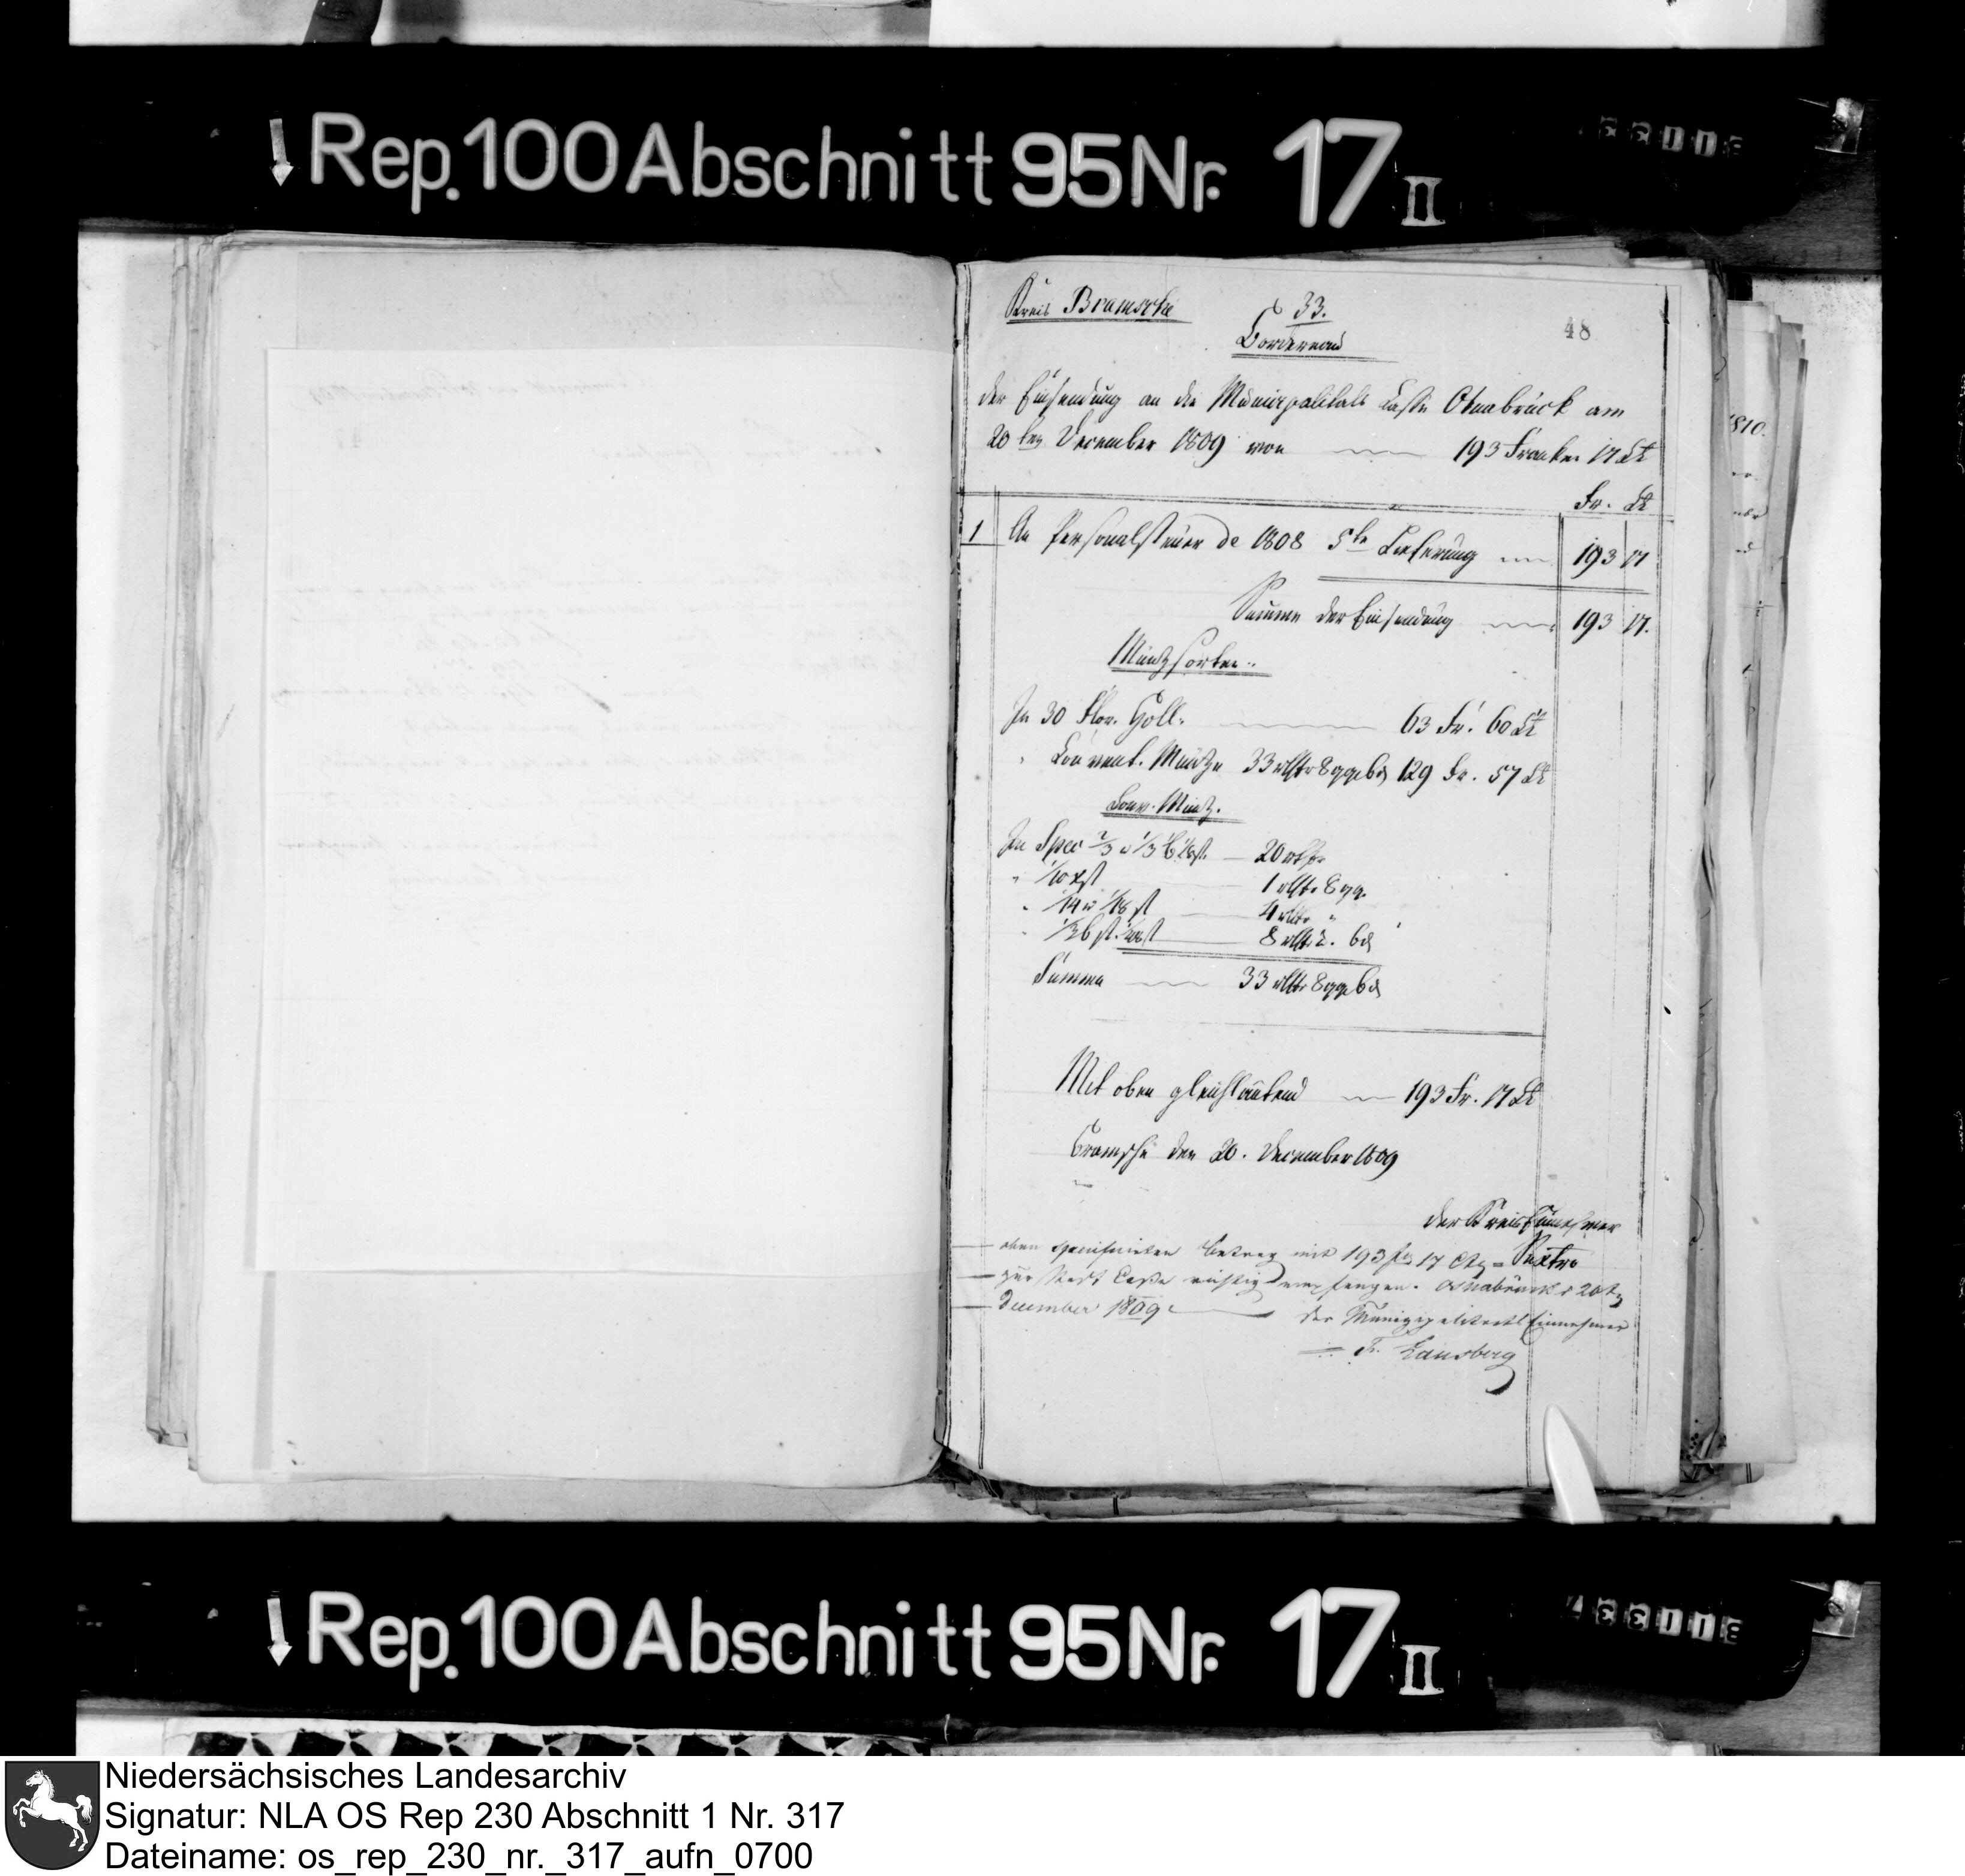 Rep. 100 Abschnitt 95 Nr. 17 II
Kreis Bramsche
33.
48
Bordereau
der Einsendung an die Municipalitaets Casse Osnabrück am
20ten December 1809 von 193 Franken 17 Ct
Fr. Ct
1 An Personalsteuer de 1808 5te Lieferung 193 17
Summa der Einsendung 193 17.
Müntzsorten.
In 30 Flor. Holl. 63 Fr. 60 Ct
" Convent. Müntze 33 rthlr 8 gg 6 d 129 Fr. 57 Ct
Conv. Müntz.
In Spec 2/3 u 1/3 1/6 st. 20 rthlr
1 rthlr 8 gg.
4 rthlr "
8 rthlr " 6 d
Summa 33 rthlr 8 gg 6 d
Mit oben gleichlautend 193 Fr. 17 Ct
Bramsche den 20. December 1809
der Kreis Einnehmer
Sextro
oben specificirten Betrag mit 193 frs 17 Cts
zur Stadt Casse richtig empfangen. Osnabrück d 20t
December 1809. der Municipalitaets Einnehmer
Fr. Lansberg
1810.
Rep. 100 Abschnitt 95 Nr. 17 II
Niedersächsisches Landesarchiv
Signatur: NLA OS Rep 230 Abschnitt 1 Nr. 317
Dateiname: os_rep_230_nr._317_aufn_0700